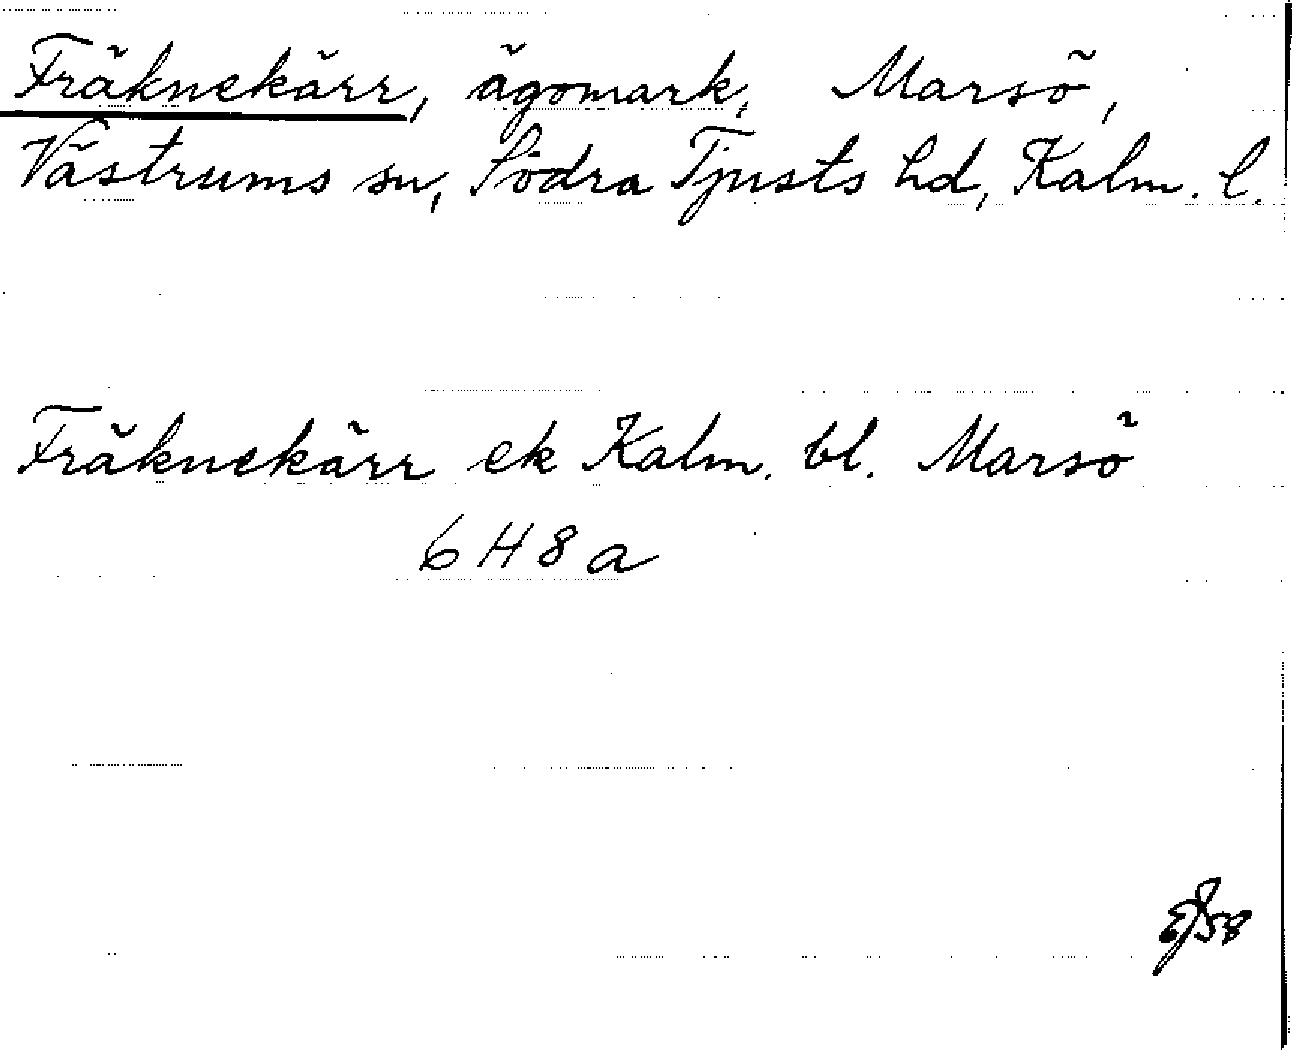 Fräknekärr, ägomark, Marsö,
Västrums sn, Södra Tjusts hd, Kalm. l.
Fräknekärr ek Kalm. bl. Marsö
6 H 8 a